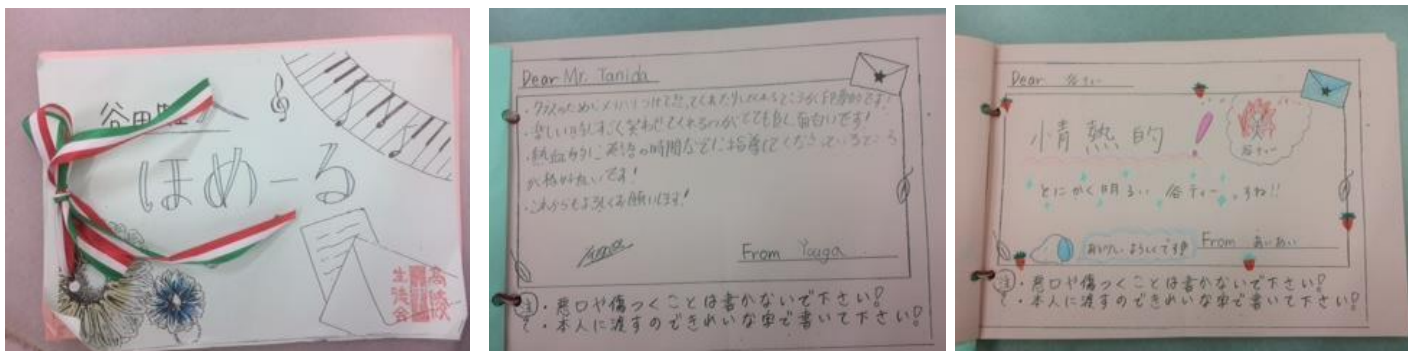 谷田
ほめーる
高陵
生徒会
Dear Mr. Tanida
・クラスのためにメリハリつけて怒ってくれたりしてくれるところが印象的です!
・楽しいときはすごく笑わせてくれるのがとても良く面白いです!
・熱血的に英語の時間などに指導してくださっているところ
が私好きです!
・これからもよろしくお願いします!
From Youga
注・悪口や傷つくことは書かないで下さい!
・本人に渡すのできれいな字で書いて下さい!
Dear 谷ティー
情熱的!
谷ティー
とにかく明るい谷ティーですね!!
よろしくです
From あいあい
注・悪口や傷つくことは書かないで下さい!
・本人に渡すのできれいな字で書いて下さい!